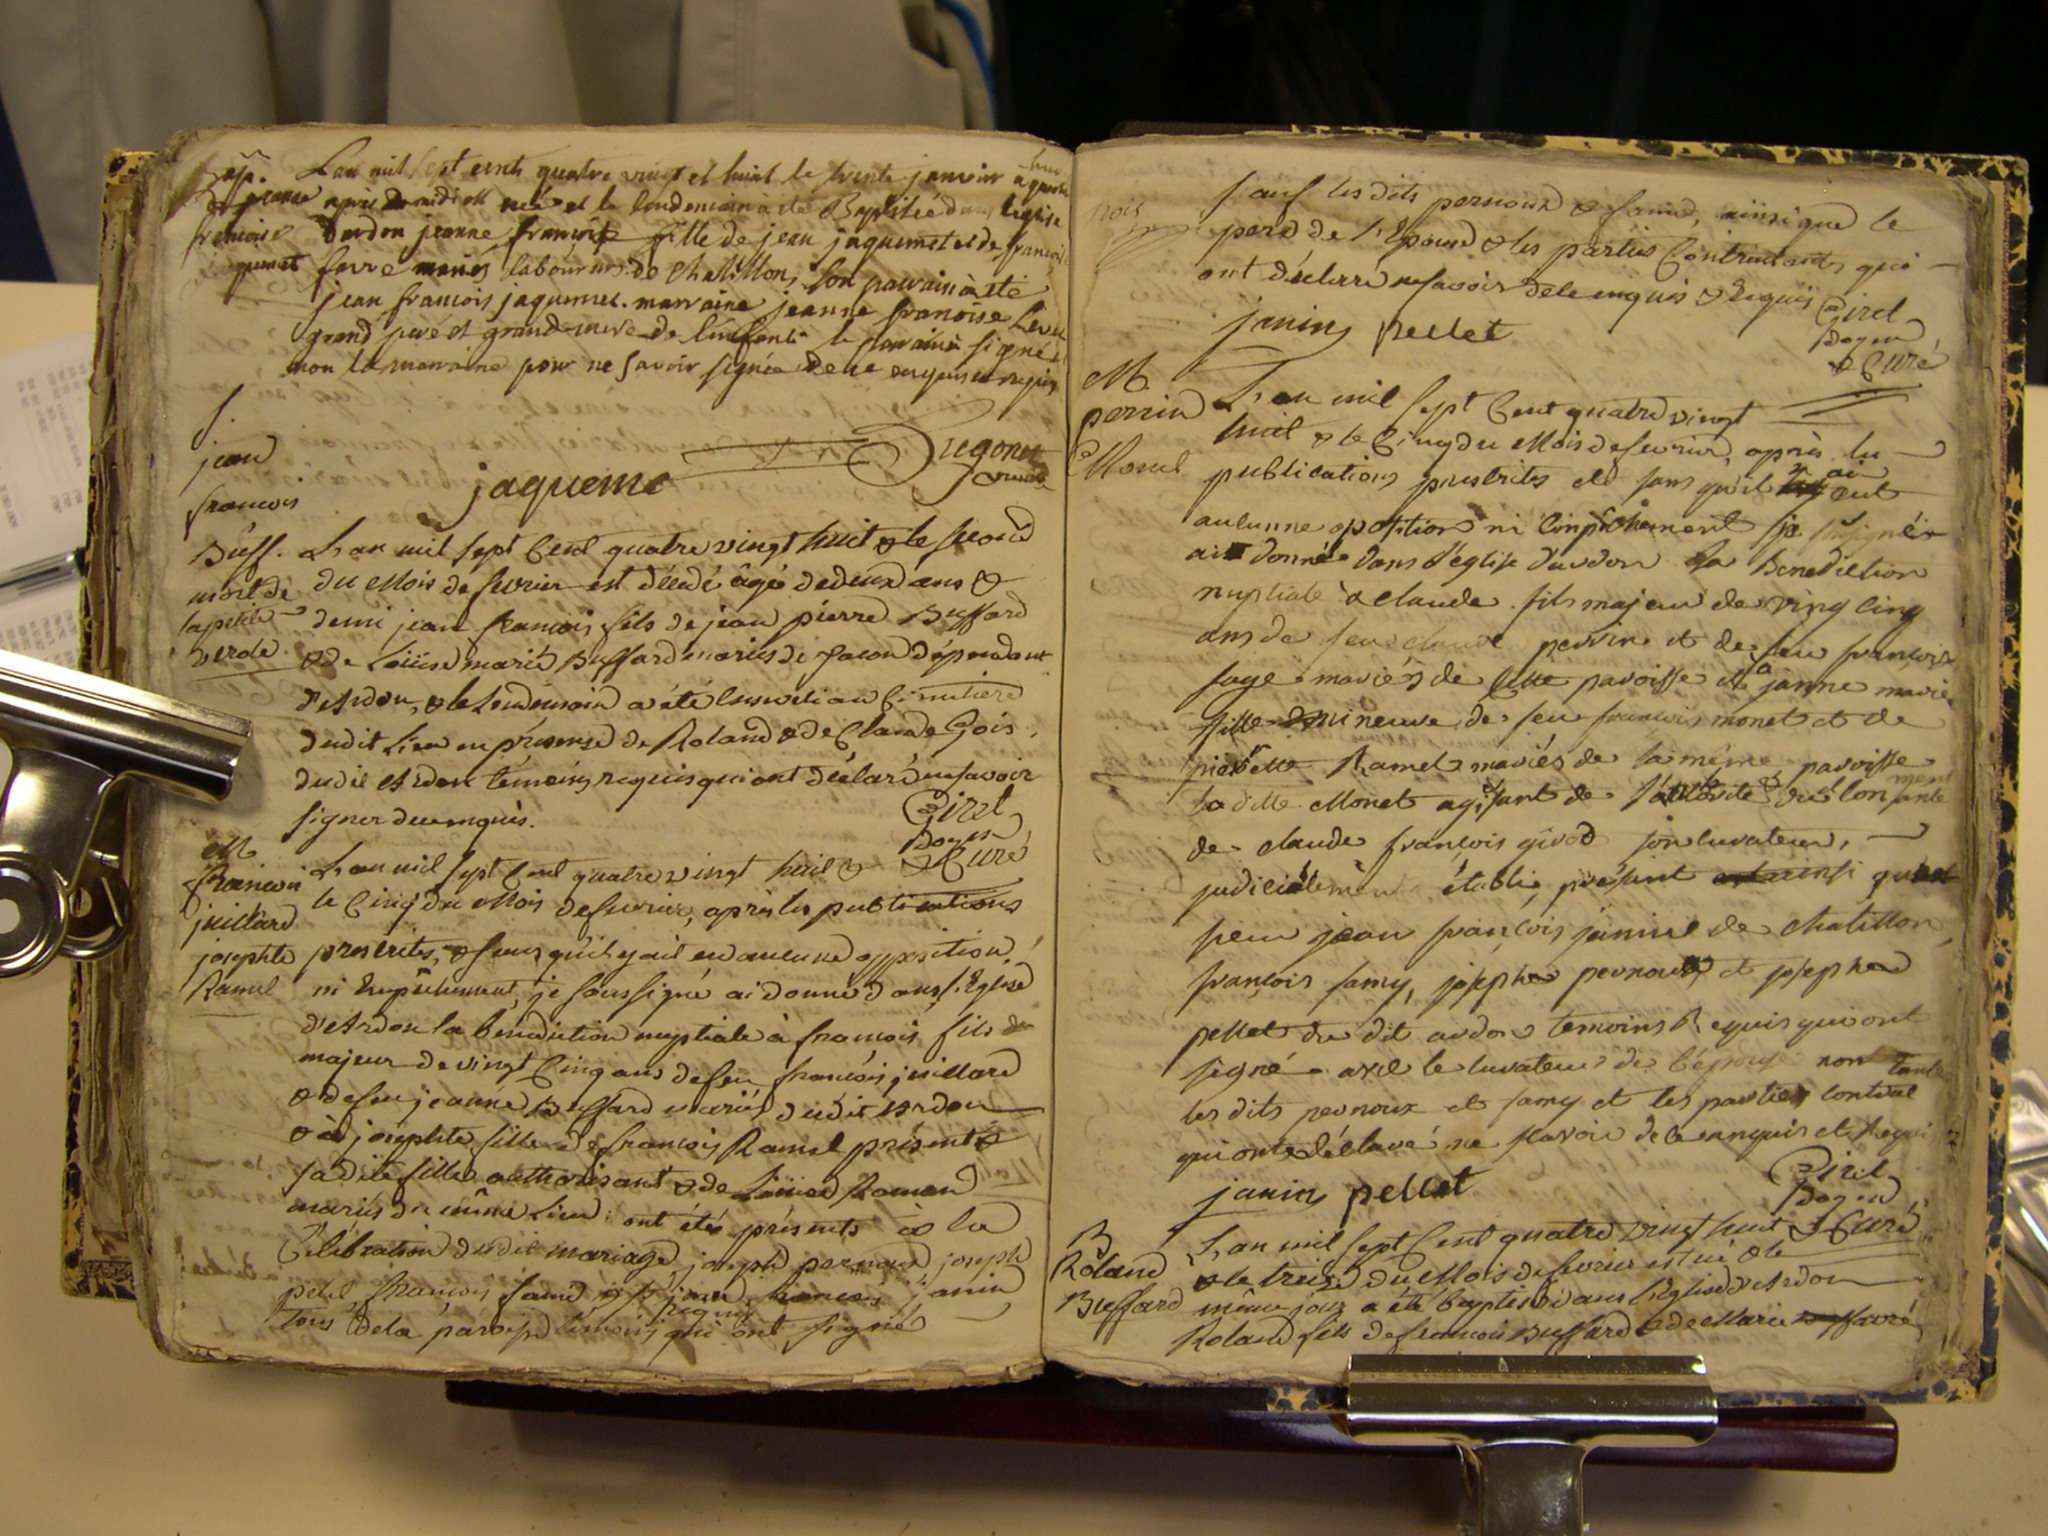 L'an mil sept cents quatre vingt et huit le trente janvier à quatre
heure
Bapt.
de jeanne
françoise
jaquemet
après midi est née et le lendemain a eté Baptisée dans l'eglise
Dardon jeanne françoise fille de jean jaquemet et de françoise
favre mariés laboureurs de Chatillon, son parrain à eté
jean francois jaquemet. marraine jeanne francoise
grand peré et grand mere de l'enfant le parrain signé
non la marraine pour ne savoir signée de ce enquis et requis
jaquemet
S.
jean
francois
Buff.
mort de
la petite
verole
L'an mil sept Cent quatre vingt huit & le second
du Mois de fevrier est décedé âgé de deux ans &
demi jean francois fils de jean pierre Buffard
& de Loüise marie Buffard mariés de dépendant
d'Ardon, & le Lendemain a été enseveli au Cimetiere
dudit Lieu en présense de Roland & de Claude Gois
dudit Ardon témoins requis qui ont déclaré ne savoir
signer de ce enquis.
Girel
Doyen
& Curé
M
françois
juillard
josephte
Ramel
L'an mil sept Cent quatre vingt huit &
le Cinq du Mois de fevrier, après les publications
prescrites, & sans qu'il y ait eu aucune opposition,
ni Empêchement, je soussigné ai donné dans l'Eglise
d'Ardon la benediction nuptiale à francois, fils
majeur de vingt Cinq ans de feu francois juillard
& de feu jeanne Buffard mariés dudit Ardon
& à josephte fille de francois Ramel présent &
sa dite fille authorisant & de Loüise
mariés du même Lieu: ont étés présents à la
Célébration dudit mariage joseph pernoud joseph
pelet françois famé & jean francois janin
tous de la paroisse témoins requis qui ont signé
sauf les dits pernoux & famé, ainsi que le
pere de l'Epouse & les parties Contractantes qui
ont déclaré ne savoir de ce enquis & Requis
Girel
Doyen
& Curé
janin pellet
M
perrin
Monet
L'an mil sept Cent quatre vingt
huit & le Cinq du Mois de fevrier, après les
publications prescrites et sans qu'il y ai eut
aucunne opotition ni Empechement je sousigné
ai donné dans l'église d'ardon la Benediction
nuptiale à claude fils majeur de vingt cinq
ans de feu claude perrin et de feu francoise
sage mariés de cette paroisse et a janne marie
fille mineure de feu francois monet et de
pierette Ramel mariés de la même paroisse
la ditte Monet agisant de l'autorité & du consentement
de claude françois girod son curateur,
judiciélement établi, présent ainsi que
sieur jean françois janin de chatillon,
françois famy, joseph pernoux et joseph
pellet du dit ardon temoins Requis qui ont
signé avec le curateur de l'épouse non
les dits pernoux et famy et les parties
qui ont déclaré ne scavoir de ce enquis et Requis
Girel
Doyen
& Curé
janin pellet
B
Roland
Buffard
L'an mil sept Cent quatre vingt huit
& le treize du Mois de fevrier est né & le
même jour a été baptisé dans l'Eglise d'Ardon
Roland fils de francois Buffard & de Marie favre